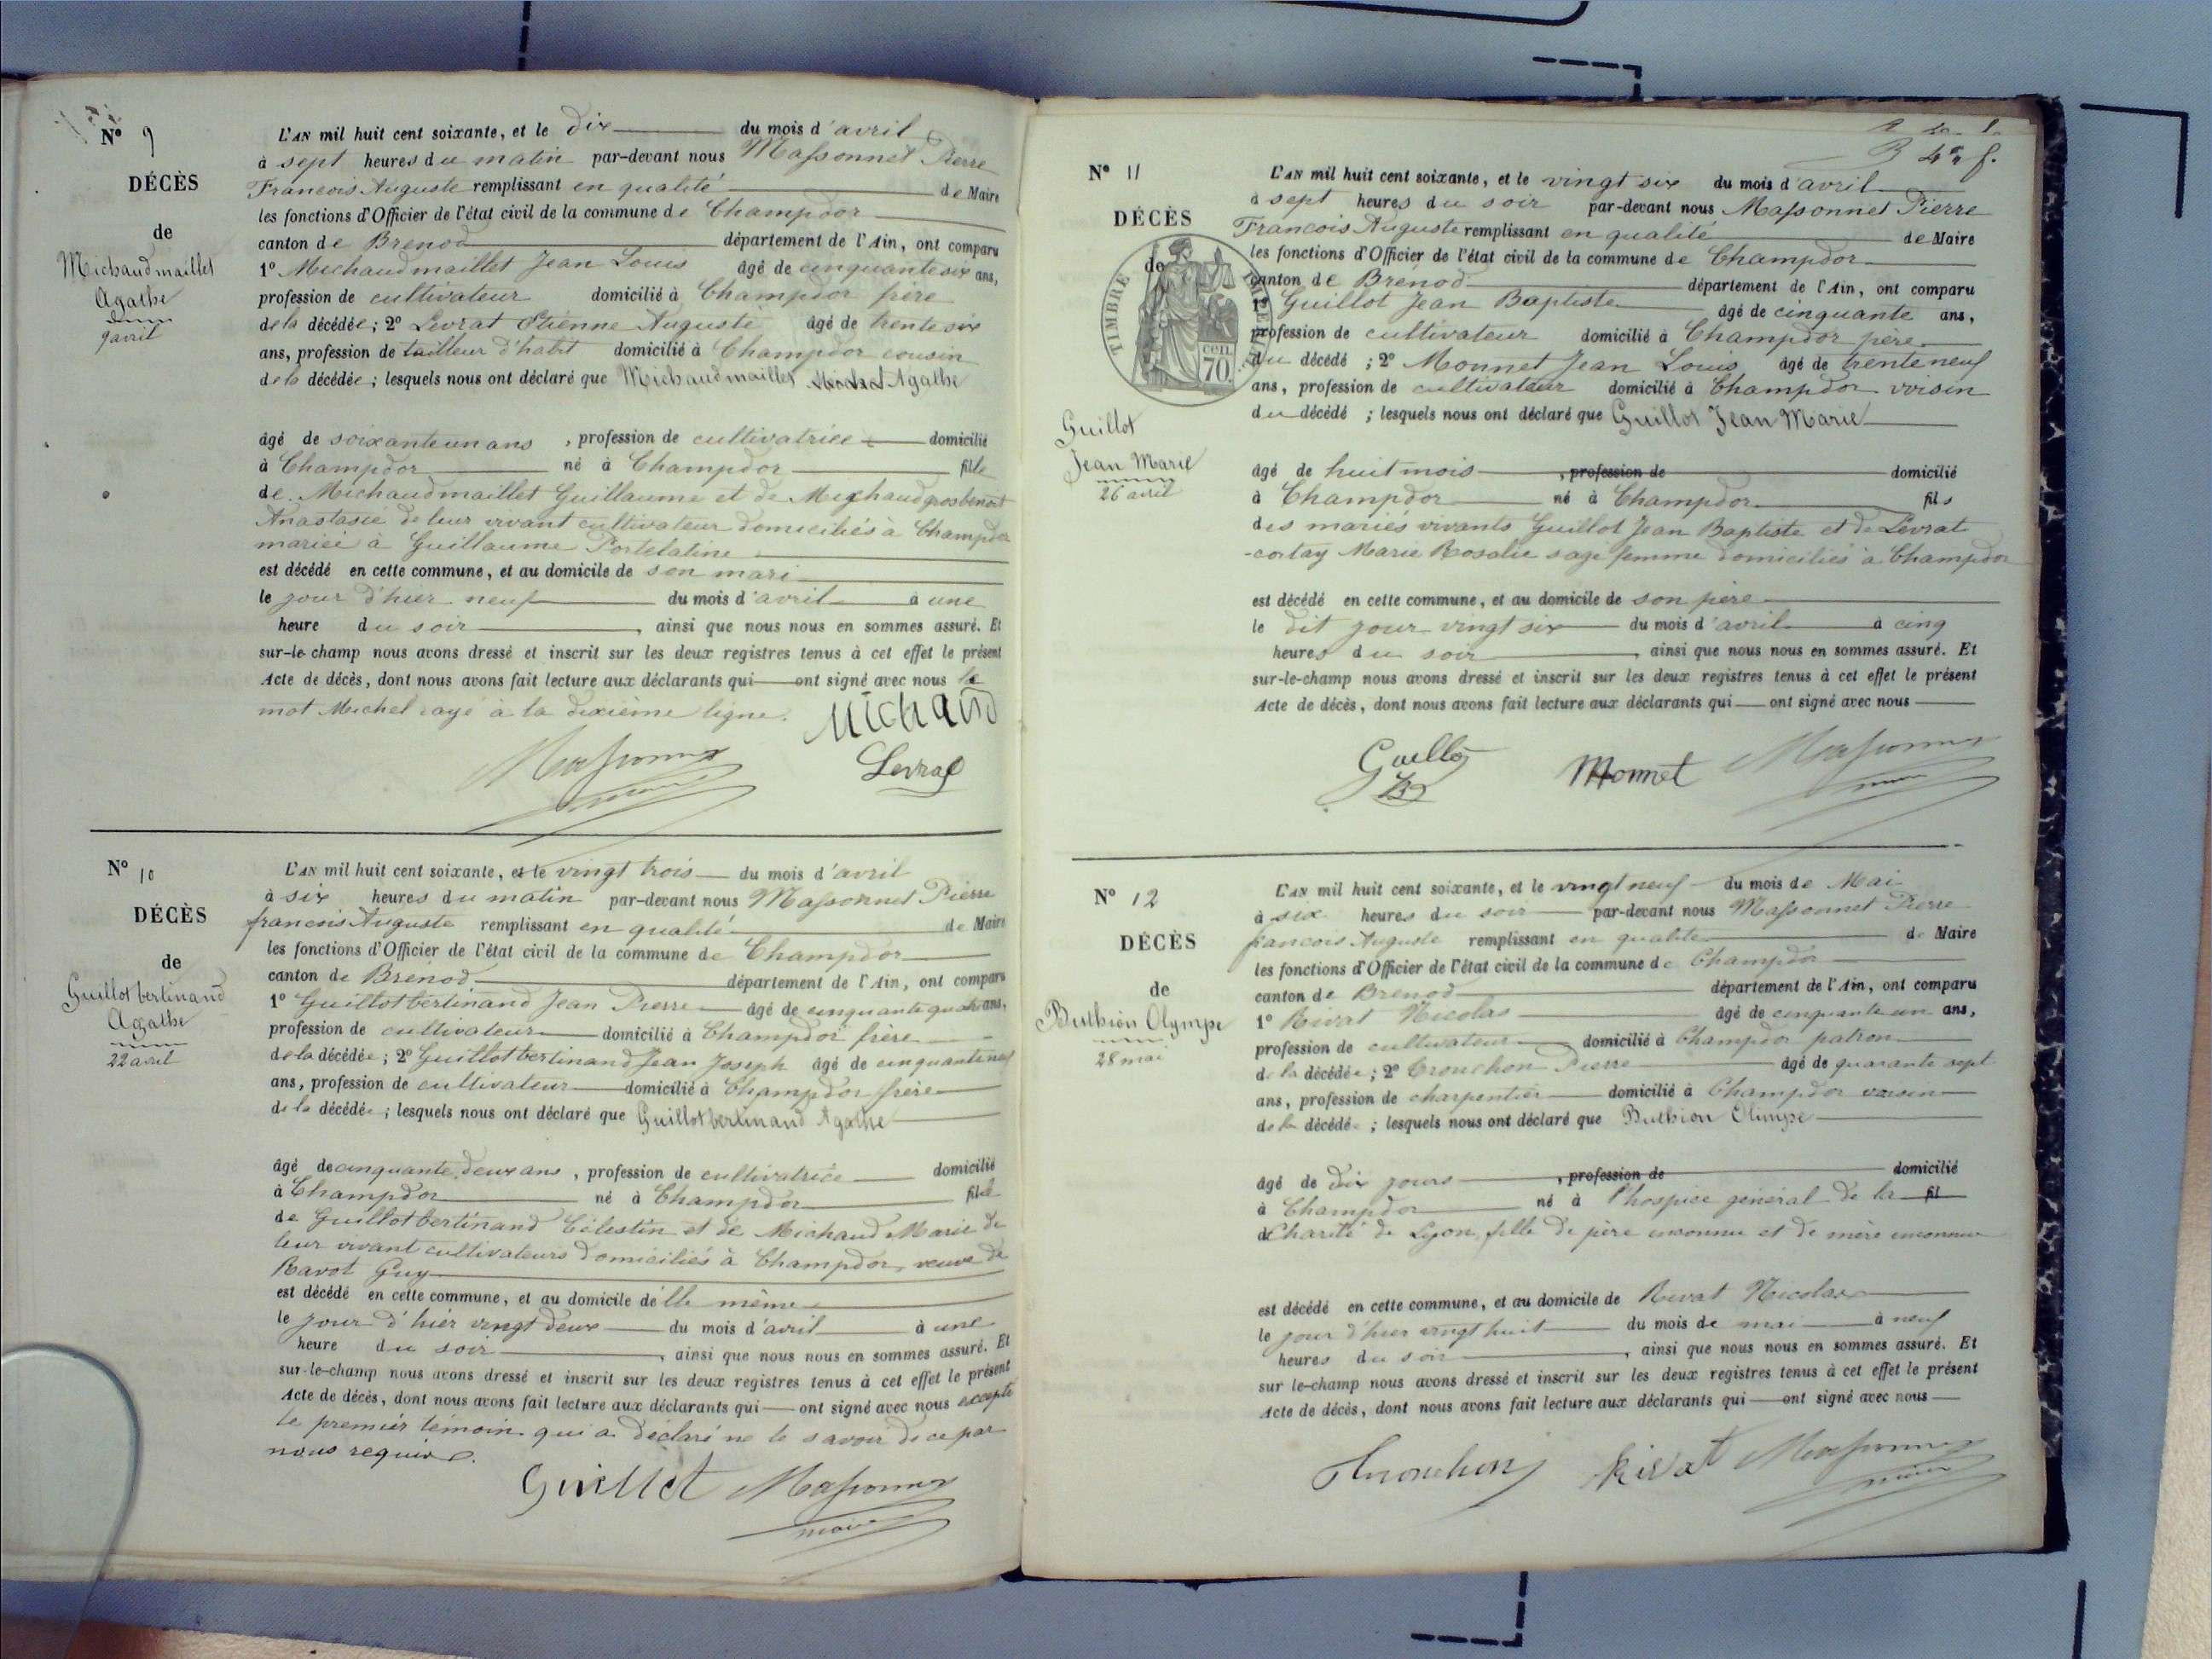 N° 9
DÉCÈS
de
Michaudmaillet
Agathe
9 avril
L'AN mil huit cent soixante, et le dix du mois d'avril
à sept heures du matin par-devant nous Massonnet Pierre
François Auguste remplissant en qualité de Maire
les fonctions d'Officier de l'état civil de la commune de Champdor
canton de Brenod département de l'Ain, ont comparu
1° Michaudmaillet Jean Louis âgé de cinquante six ans,
profession de cultivateur domicilié à Champdor frère
de la décédée; 2° Levrat Etienne Auguste âgé de trente six
ans, profession de tailleur d'habit domicilié à Champdor cousin
de la décédée; lesquels nous ont déclaré que Michaudmaillet Michel Agathe
âgé de soixante un ans, profession de cultivatrice domicilié
à Champdor né à Champdor fille
de Michaudmaillet Guillaume et de Michaudgrosbenoit
Anastasie de leur vivant cultivateur domiciliés à Champdor
mariée à Guillaume Portelatine
est décédé en cette commune, et au domicile de son mari
le jour d'hier neuf du mois d'avril à une
heure du soir, ainsi que nous nous en sommes assuré. Et
sur-le-champ nous avons dressé et inscrit sur les deux registres tenus à cet effet le présent
Acte de décès, dont nous avons fait lecture aux déclarants qui ont signé avec nous le
mot Michel rayé à la dixième ligne.
Michaud
Massonnet
maire
Levrat
N° 10
DÉCÈS
de
Guillotbertinand
Agathe
22 avril
L'AN mil huit cent soixante, et le vingt trois du mois d'avril
à six heures du matin par-devant nous Massonnet Pierre
françois Auguste remplissant en qualité de Maire
les fonctions d'Officier de l'état civil de la commune de Champdor
canton de Brenod département de l'Ain, ont comparu
1° Guillotbertinand Jean Pierre âgé de cinquante quatre ans,
profession de cultivateur domicilié à Champdor frère
de la décédée; 2° Guillotbertinand Jean Joseph âgé de cinquante neuf
ans, profession de cultivateur domicilié à Champdor frère
de la décédée; lesquels nous ont déclaré que Guillotbertinand Agathe
âgé de cinquante deux ans, profession de cultivatrice domicilié
à Champdor né à Champdor fille
de Guillotbertinand Célestin et de Michaud Marie de
leur vivant cultivateurs domiciliés à Champdor, veuve de
Ravot Guy
est décédé en cette commune, et au domicile d'elle même
le jour d'hier vingt deux du mois d'avril à une
heure du soir, ainsi que nous nous en sommes assuré. Et
sur-le-champ nous avons dressé et inscrit sur les deux registres tenus à cet effet le présent
Acte de décès, dont nous avons fait lecture aux déclarants qui ont signé avec nous excepté
le premier témoin qui a déclaré ne le savoir de ce par
nous requis.
Guillot Massonnet
maire
N° 11
DÉCÈS
de
TIMBRE
70
Guillot
Jean Marie
26 avril
L'AN mil huit cent soixante, et le vingt six du mois d'avril
à sept heures du soir par-devant nous Massonnet Pierre
François Auguste remplissant en qualité de Maire
les fonctions d'Officier de l'état civil de la commune de Champdor
canton de Brénod département de l'Ain, ont comparu
1° Guillot Jean Baptiste âgé de cinquante ans,
profession de cultivateur domicilié à Champdor père
du décédé; 2° Monnet Jean Louis âgé de trente neuf
ans, profession de cultivateur domicilié à Champdor voisin
du décédé; lesquels nous ont déclaré que Guillot Jean Marie
âgé de huit mois, profession de domicilié
à Champdor né à Champdor fils
des mariés vivants Guillot Jean Baptiste et de Levrat
-cortay Marie Rosalie sage femme domiciliés à Champdor
est décédé en cette commune, et au domicile de son père
le dit jour vingt six du mois d'avril à cinq
heures du soir, ainsi que nous nous en sommes assuré. Et
sur-le-champ nous avons dressé et inscrit sur les deux registres tenus à cet effet le présent
Acte de décès, dont nous avons fait lecture aux déclarants qui ont signé avec nous
Guillot Monnet Massonnet
maire
N° 12
DÉCÈS
de
Buthion Olympe
28 mai
L'AN mil huit cent soixante, et le vingt neuf du mois de Mai
à six heures du soir par-devant nous Massonnet Pierre
françois Auguste remplissant en qualité de Maire
les fonctions d'Officier de l'état civil de la commune de Champdor
canton de Brenod département de l'Ain, ont comparu
1° Rivat Nicolas âgé de cinquante un ans,
profession de cultivateur domicilié à Champdor patron
de la décédée; 2° Tronchon Pierre âgé de quarante sept
ans, profession de charpentier domicilié à Champdor voisin
de la décédée; lesquels nous ont déclaré que Buthion Olimpe
âgé de dix jours, profession de domicilié
à Champdor né à l'hospice général de la fil
de Charité de Lyon, fille de père inconnu et de mère inconnue
est décédé en cette commune, et au domicile de Rivat Nicolas
le jour d'hier vingt huit du mois de mai à neuf
heures du soir, ainsi que nous nous en sommes assuré. Et
sur le-champ nous avons dressé et inscrit sur les deux registres tenus à cet effet le présent
Acte de décès, dont nous avons fait lecture aux déclarants qui ont signé avec nous
Tronchon Rivat Massonnet
maire